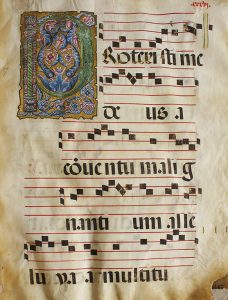 Protexi sti me
de us a
cōuentu malig
nanti um alle
lu ya a multitu